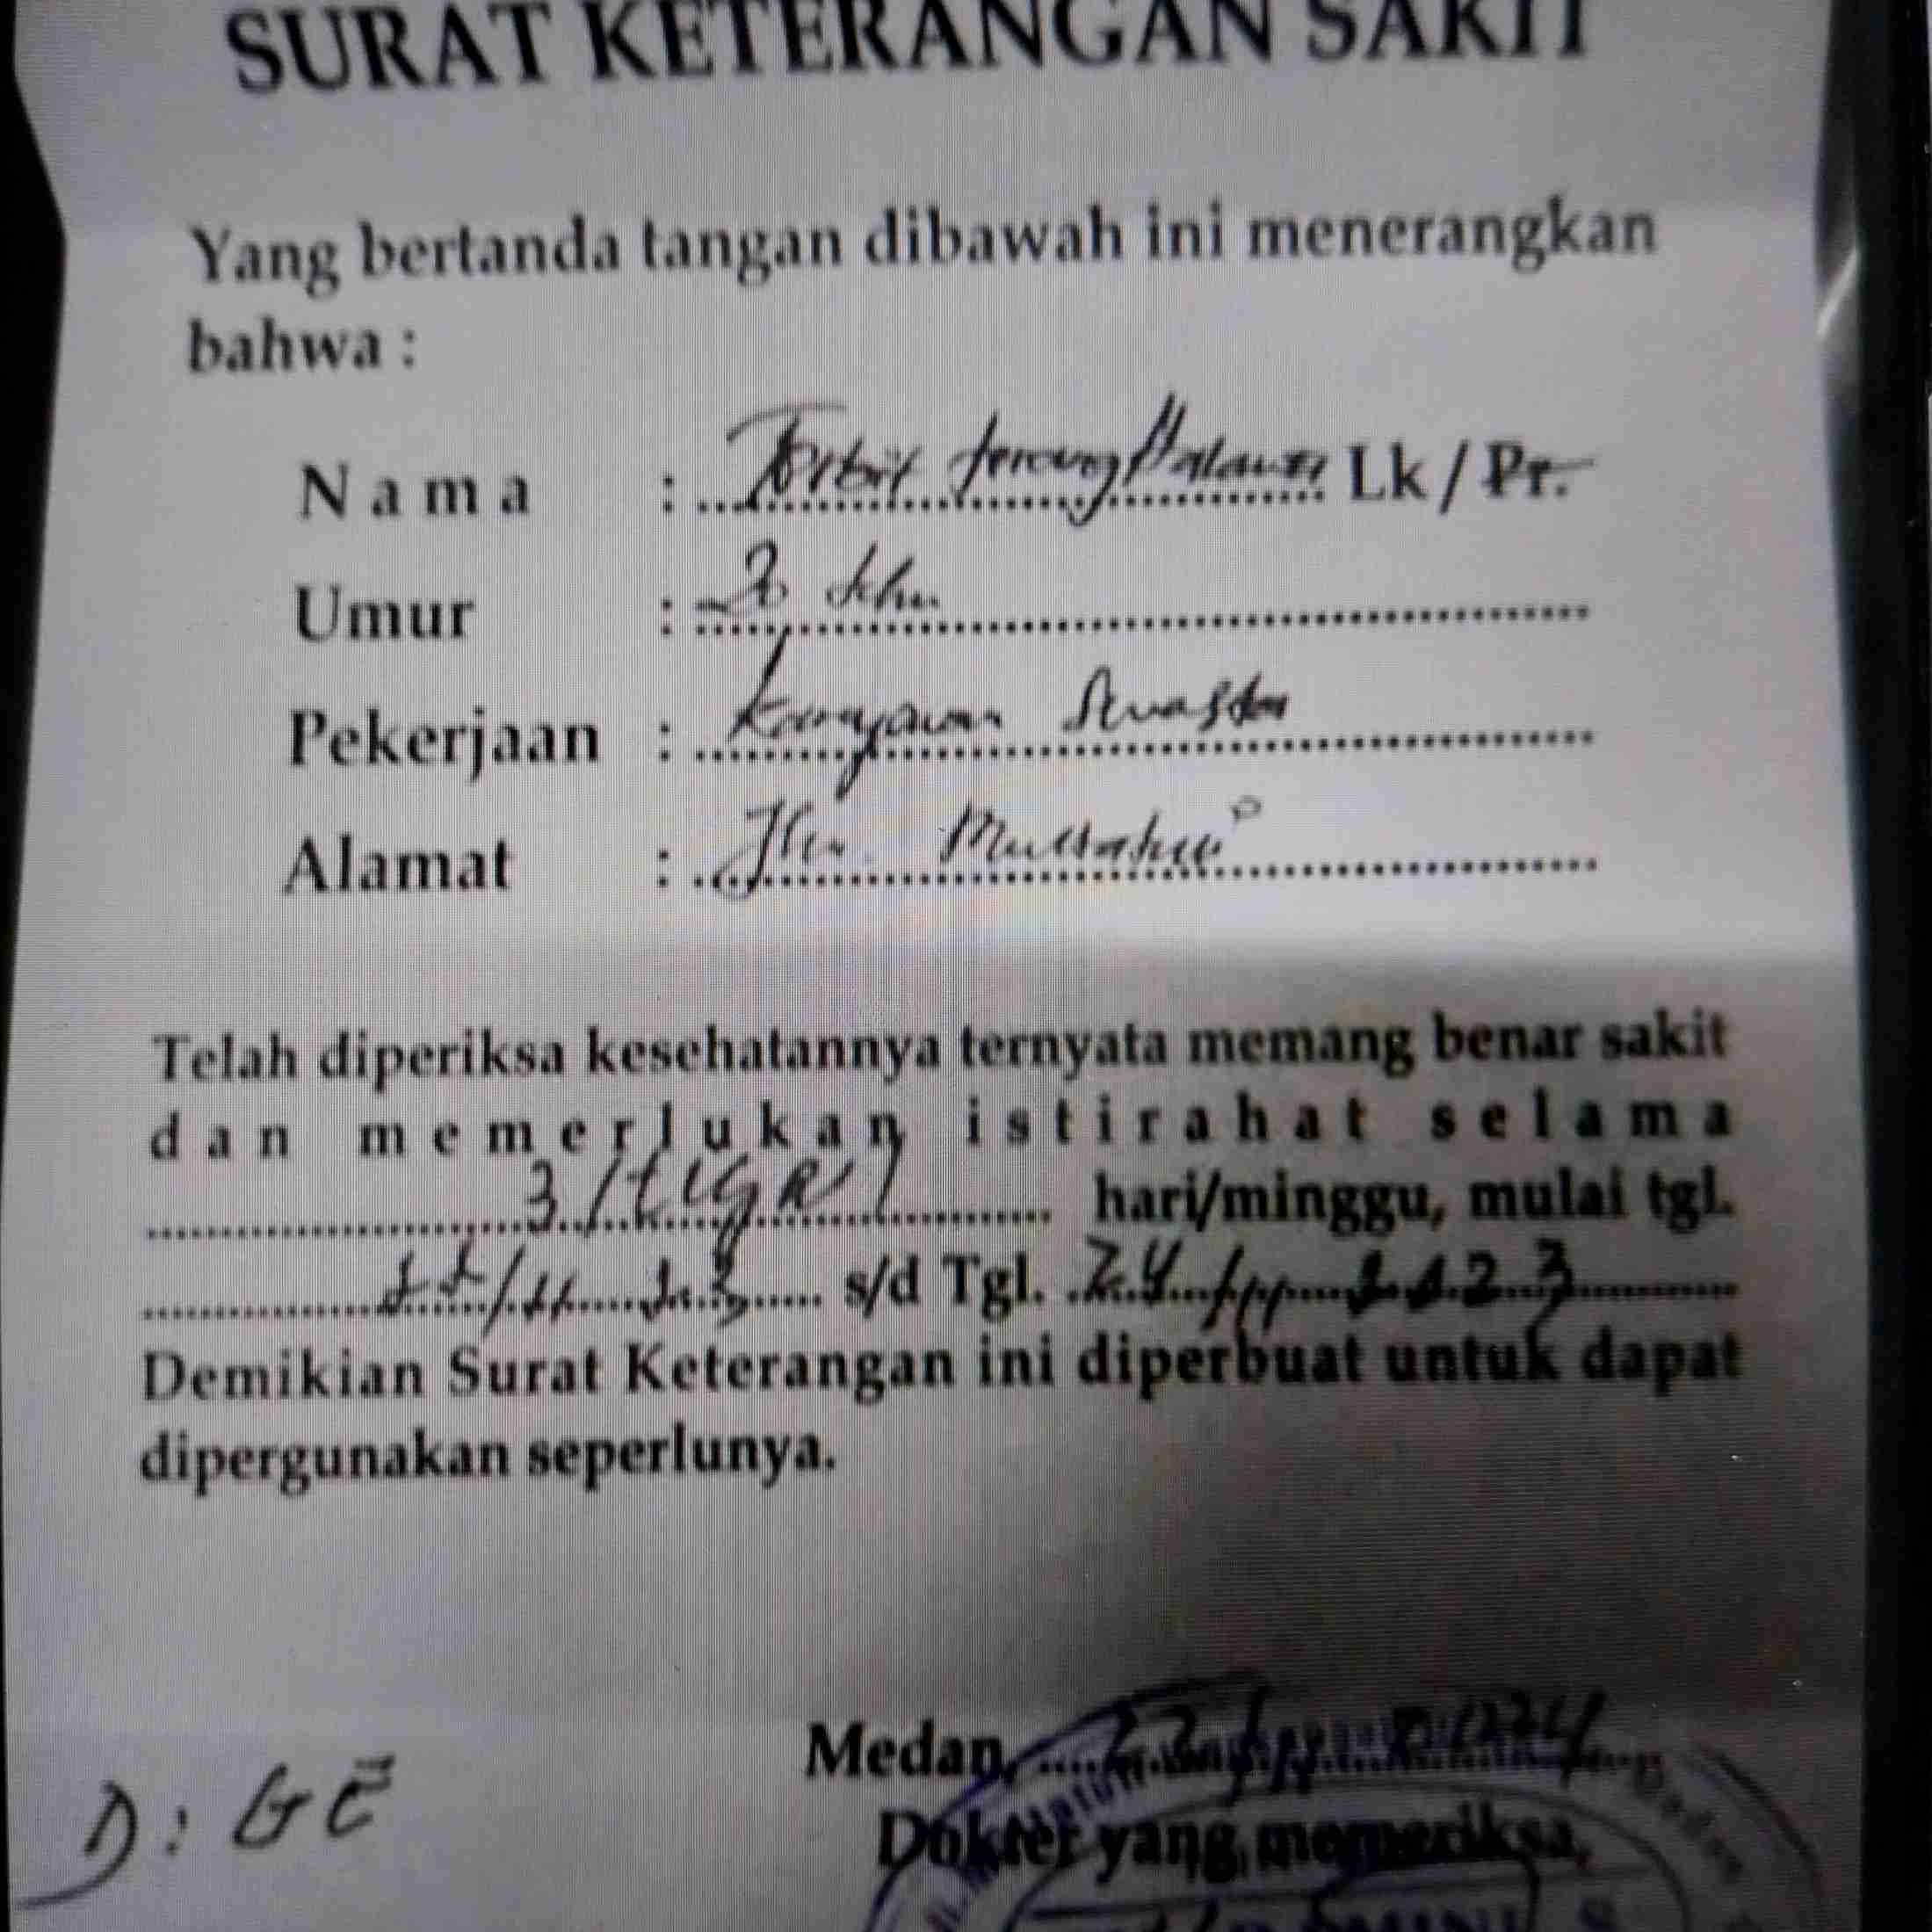 SURAT KETERANGAN SAKIT
Yang bertanda tangan dibawah ini menerangkan
bahwa :
Nama : Terbit terang Lk / Pr.
Umur : thn
Pekerjaan : Karyawan Swasta
Alamat : Jln.
Telah diperiksa kesehatannya ternyata memang benar sakit
dan memerlukan istirahat selama
3 / tiga hari/minggu, mulai tgl.
s/d Tgl. 24 / 11 2023
Demikian Surat Keterangan ini diperbuat untuk dapat
dipergunakan seperlunya.
Medan,
D : GE
Dokter yang memeriksa,